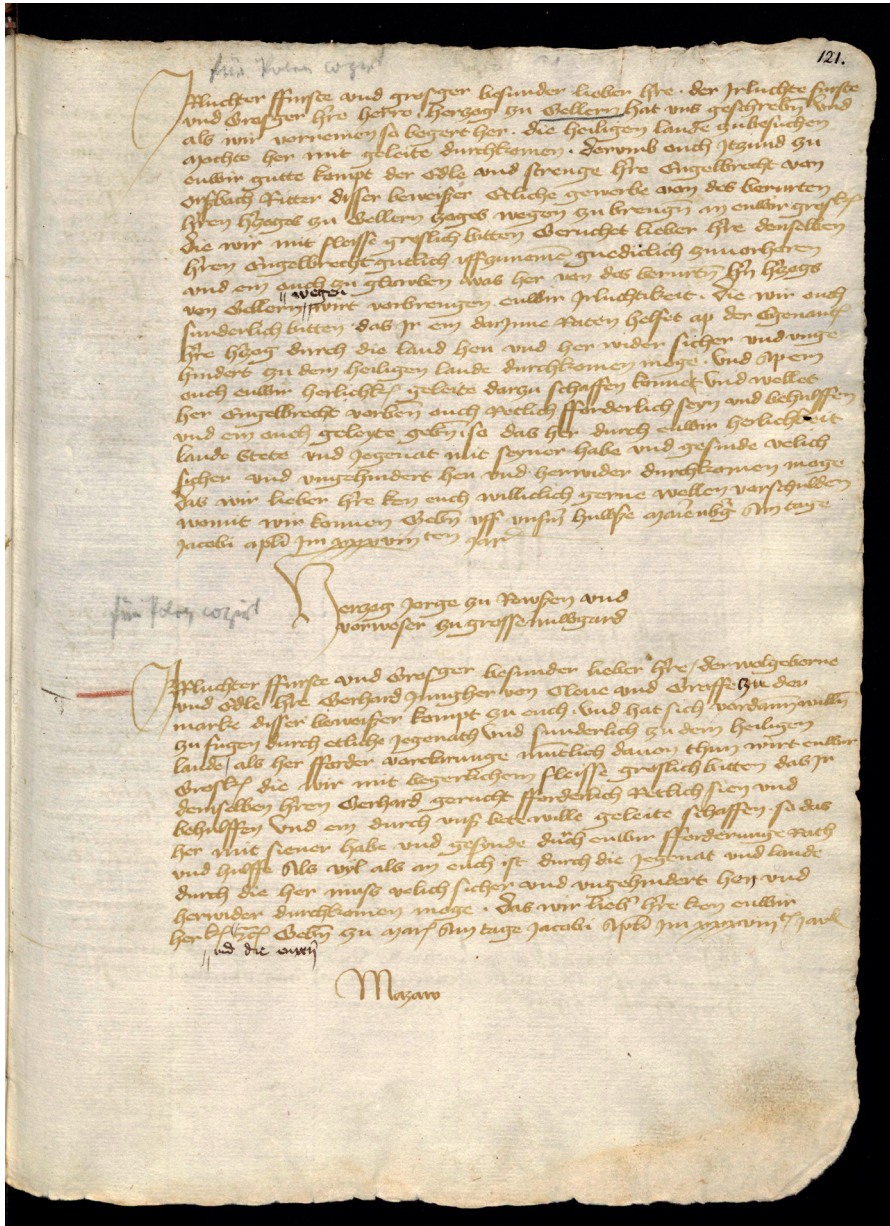 121.
für Polen copirt
Irluchter ffurste und grosger besunder lieber h're. der Irluchte furste
und Grosger h're herre herczog zu Gellern hat uns geschreben und
als wir vornemen so begert her. die heiligen lande zubesuchen
mochte her mit geleite durchkomen. Dorumb ouch Itzund zu
euwir gutte kompt der Edle und strenge h're Engelbrecht von
Orsbach Ritter disser beweiszer Etliche gewerbe von des berurten
h'ren h'czoges zu Gellern wegen zu brengen an euwir grosk
Die wir mit fleisse groslich bitten Geruchet lieber h're denselben
h'ren Engelbrecht gutlich uffzunemen gnediclich zuuorhoren
und em ouch zu glawben was her von des berurten h'rn h'czogs
von Gellern wegen wirt vorbrengen euwir Irluchtikeit. Die wir ouch
sunderlich bitten das Ir em darinne Raten helfet ap der Egenante
h're h'czog durch die land hen und her wider sicher und unge
hindert zu dem heiligen lande durchkomen moge. Und ap em
ouch euwir herlichk geleite darzu schaffen konnet und wellet
her Engelbrecht vorben ouch Retlich fforderlich seyn und behulffen
und em ouch geleyte geben so das her durch euwir herlichkeit
lande Stete und Jegenat mit seyner habe und gesinde velich
sicher und ungehindert hen und herwider durchkomen moge
Das wir lieber h're ken euch williclich gerne wellen vorschulden
womit wir konnen Geben uff unserm huwsze Marienb'g Am tage
Jacobi ap'li Im xxxviii ten Jar
Herczog Jorge zu Rewszen und
vorweser zu grossenuwgard
für Polen copirt
Irluchter ffurste und Grosger besunder lieber h're, der wolgeborne
und Edle h're Gerhard Jungher von Cleue und Graffe zu der
marke disser beweiszer kompt zu euch. und hat sich vordan willen
zu fugen durch etliche Jegenath und sunderlich zu dem heiligen
lande, als her fforder vorclerunge muntlich dauon thun wirt euwir
Grosk die wir mit begerlichem fleisse groslich bitten das Ir
demselben h'ren Gerhard gerucht fforderlich Retlich sien und
behulffen Und em durch uns' bete wille geleite schaffen. so das
her mit siener habe und gesynde durch euwir fforderunge Rath
und hulffe Als vil als an euch ist durch die Jegenat und lande
durch die her muss velich sicher und ungehindert hen und
herwider durchkomen moge. Das wir lieb' h're ken euwir
herk Geben zu Mar Am tage Jacobi Ap'li Im xxxviii t Jare
und die euwern
Mazaw